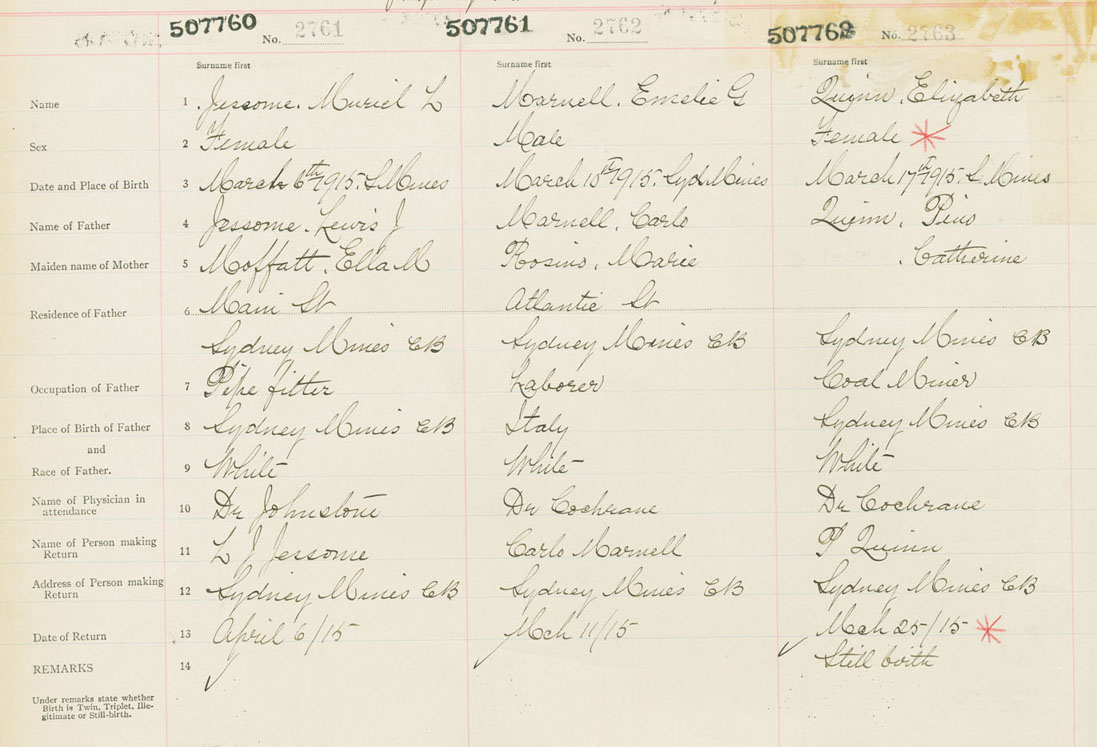 507760 No. 2761 507761 No. 2762 507762 No. 2763
Surname first Surname first Surname first
Name 1 Jessome. Muriel L Marnell. Emelie G Quinn. Elizabeth
Sex 2 Female Male Female *
Date and Place of Birth 3 March 6th 1915. S Mines March 10th 1915. Syd Mines March 17th 1915. S Mines
Name of Father 4 Jessome. Lewis J Marnell, Carlo Quinn, Pius
Maiden name of Mother 5 Moffatt. Ella M Rosino, Marie . Catherine
Residence of Father 6 Main St Atlantic St
Sydney Mines CB Sydney Mines CB Sydney Mines CB
Occupation of Father 7 Pipe fitter Laborer Coal Miner
Place of Birth of Father 8 Sydney Mines CB Italy Sydney Mines CB
and
Race of Father. 9 White White White
Name of Physician in
attendance 10 Dr Johnstone Dr Cochrane Dr Cochrane
Name of Person making
Return 11 L J Jessome Carlo Marnell P Quinn
Address of Person making
Return 12 Sydney Mines CB Sydney Mines CB Sydney Mines CB
Date of Return 13 April 6/15 Mch 11/15 Mch 25/15 *
REMARKS 14 Still birth
Under remarks state whether
Birth is Twin, Triplet, Ille-
gitimate or Still-birth.